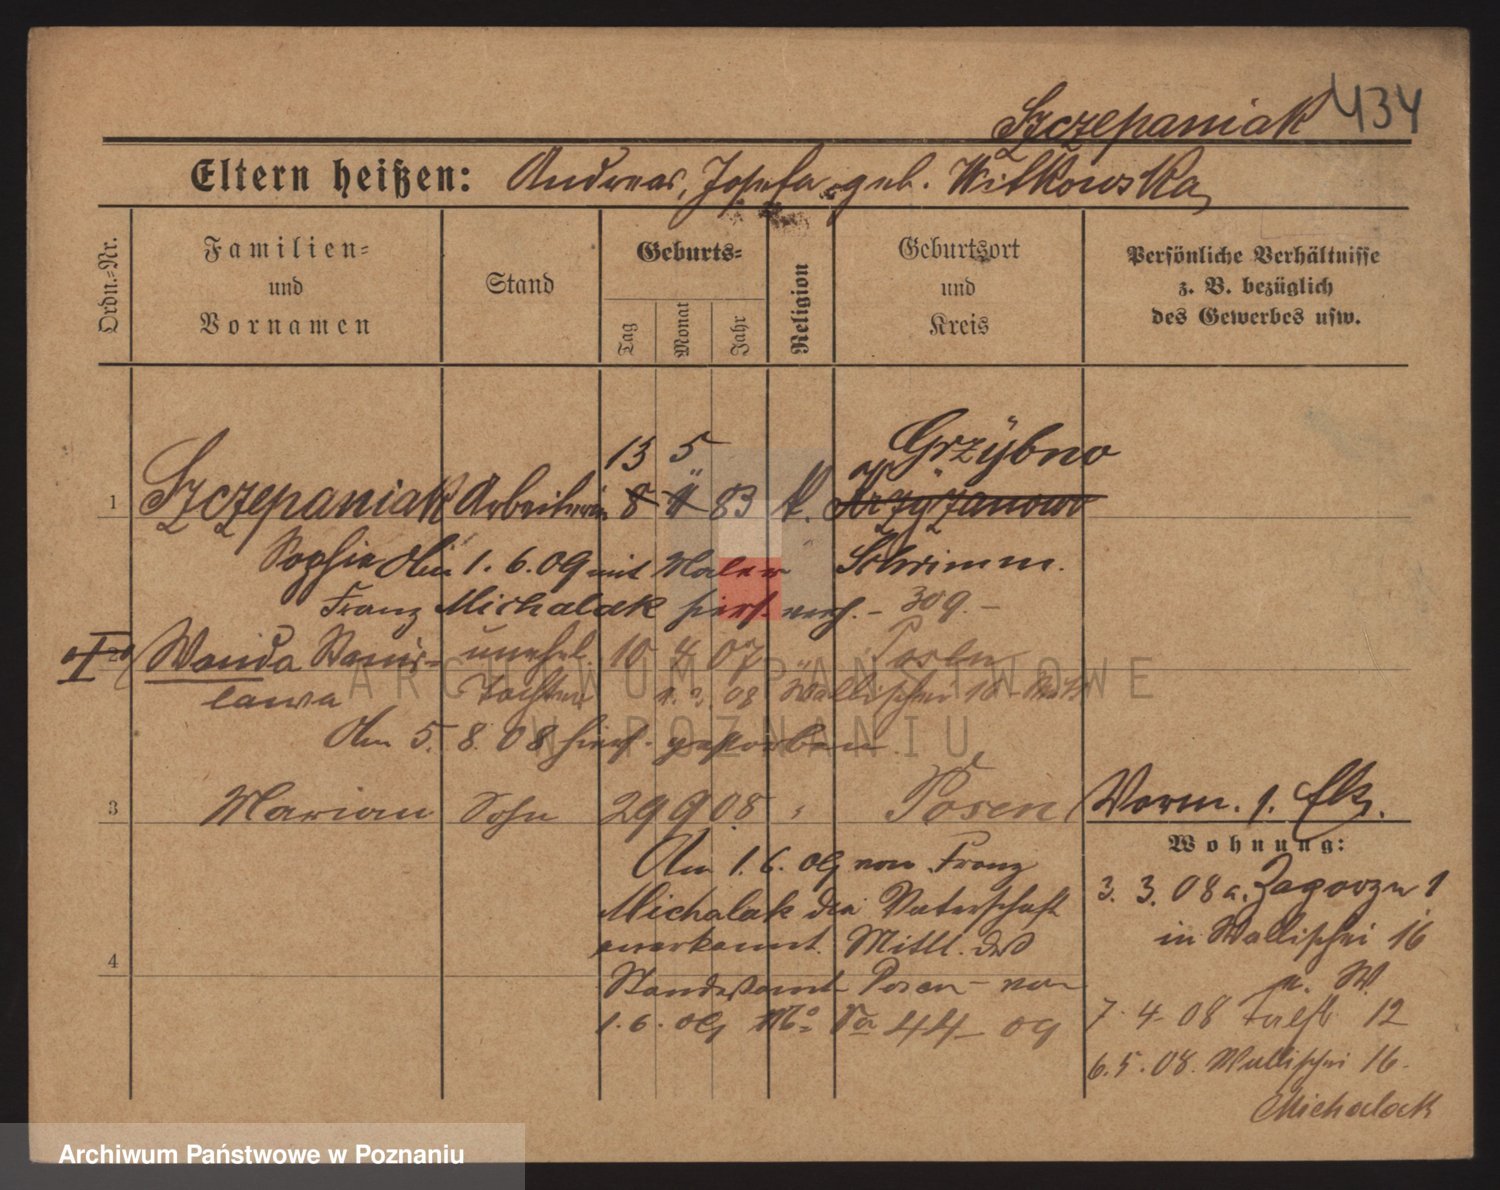 Szczepaniak 434
Eltern heißen: Andreas, Josefa geb. Witkowska
Ordn.=Nr.
Familien=
und
Vornamen
Stand
Geburts=
Tag
Monat
Jahr
Religion
Geburtsort
und
Kreis
Persönliche Verhältnisse
z. B. bezüglich
des Gewerbes usw.
13 5 Grzybno
1 Szczepaniak Arbeiterin 8 4 83 K. Krzyzanowo
Sophie Am 1. 6. 09 mit Maler Schrimm.
Franz Michalak hier. verh. - 309. -
Wanda Stanis- unehel. 10 4 07 Posen
lawa Tochter 08 Wallischei 16
Am 5. 8. 08 hier. gestorben
3 Marian Sohn 29 9 08 " Posen Verm. 1. Elz.
Wohnung:
Am 1. 6. 09 von Franz
Michalak die Vaterschaft
anerkannt. Mittl. des
4 Standesamt Posen von
1. 6. 09 No 44 09
3. 3. 08 a. Zagorze 1
in Wallischei 16
n. W.
7. 4. 08 12
6. 5. 08. Wallischei 16.
Michalak
ARCHIWUM PAŃSTWOWE
W POZNANIU
Archiwum Państwowe w Poznaniu